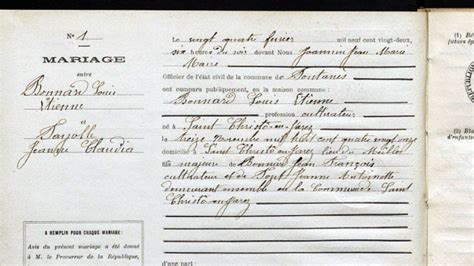 No 1
MARIAGE
entre
Bonnard Louis
Etienne
&
Fayolle
Jeanne Claudia
A REMPLIR POUR CHAQUE MARIAGE :
Avis du présent mariage a été donné
à M. le Procureur de la République,
Le vingt quatre mil neuf cent vingt-deux,
six heures du soir devant Nous Jean Marie
Maire
Officier de l'état civil de la commune de Fontanès
ont comparu publiquement, en la maison commune :
Bonnard Louis Etienne
profession cultivateur
à Saint Christô-en-Jarez
le treize mil huit cent quatre vingt onze
à Saint Christô en Jarez lieu de
fils majeur de Jean François
cultivateur et de Jeanne Antoinette
demeurant ensemble en la Commune de Saint
Christô-en-Jarez
d'une part
(1)
(2)